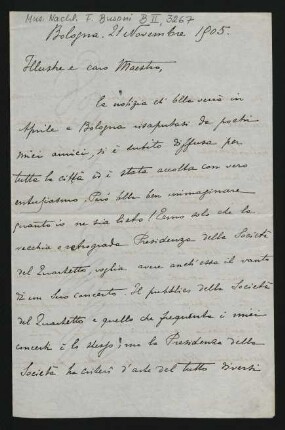 Mus. Nachl. F. Busoni B II, 3267
Bologna. 21 Novembre 1905.
Illustre e caro Maestro,
la notizia ch'Ella verrà in
Aprile a Bologna risaputasi da pochi
miei amici, si è subito diffusa per
tutta la città ed è stata accolta con vero
entusiasmo. Può Ella ben immaginare
quanto io ne sia lieto! Temo solo che la
vecchia e retrograda Presidenza della Società
del Quartetto, voglia avere anch'essa il vanto
di un Suo concerto. Il pubblico della Società
del Quartetto e quello che frequenta i miei
concerti è lo stesso; ma la Presidenza della
Società ha criteri d'arte del tutto diversi